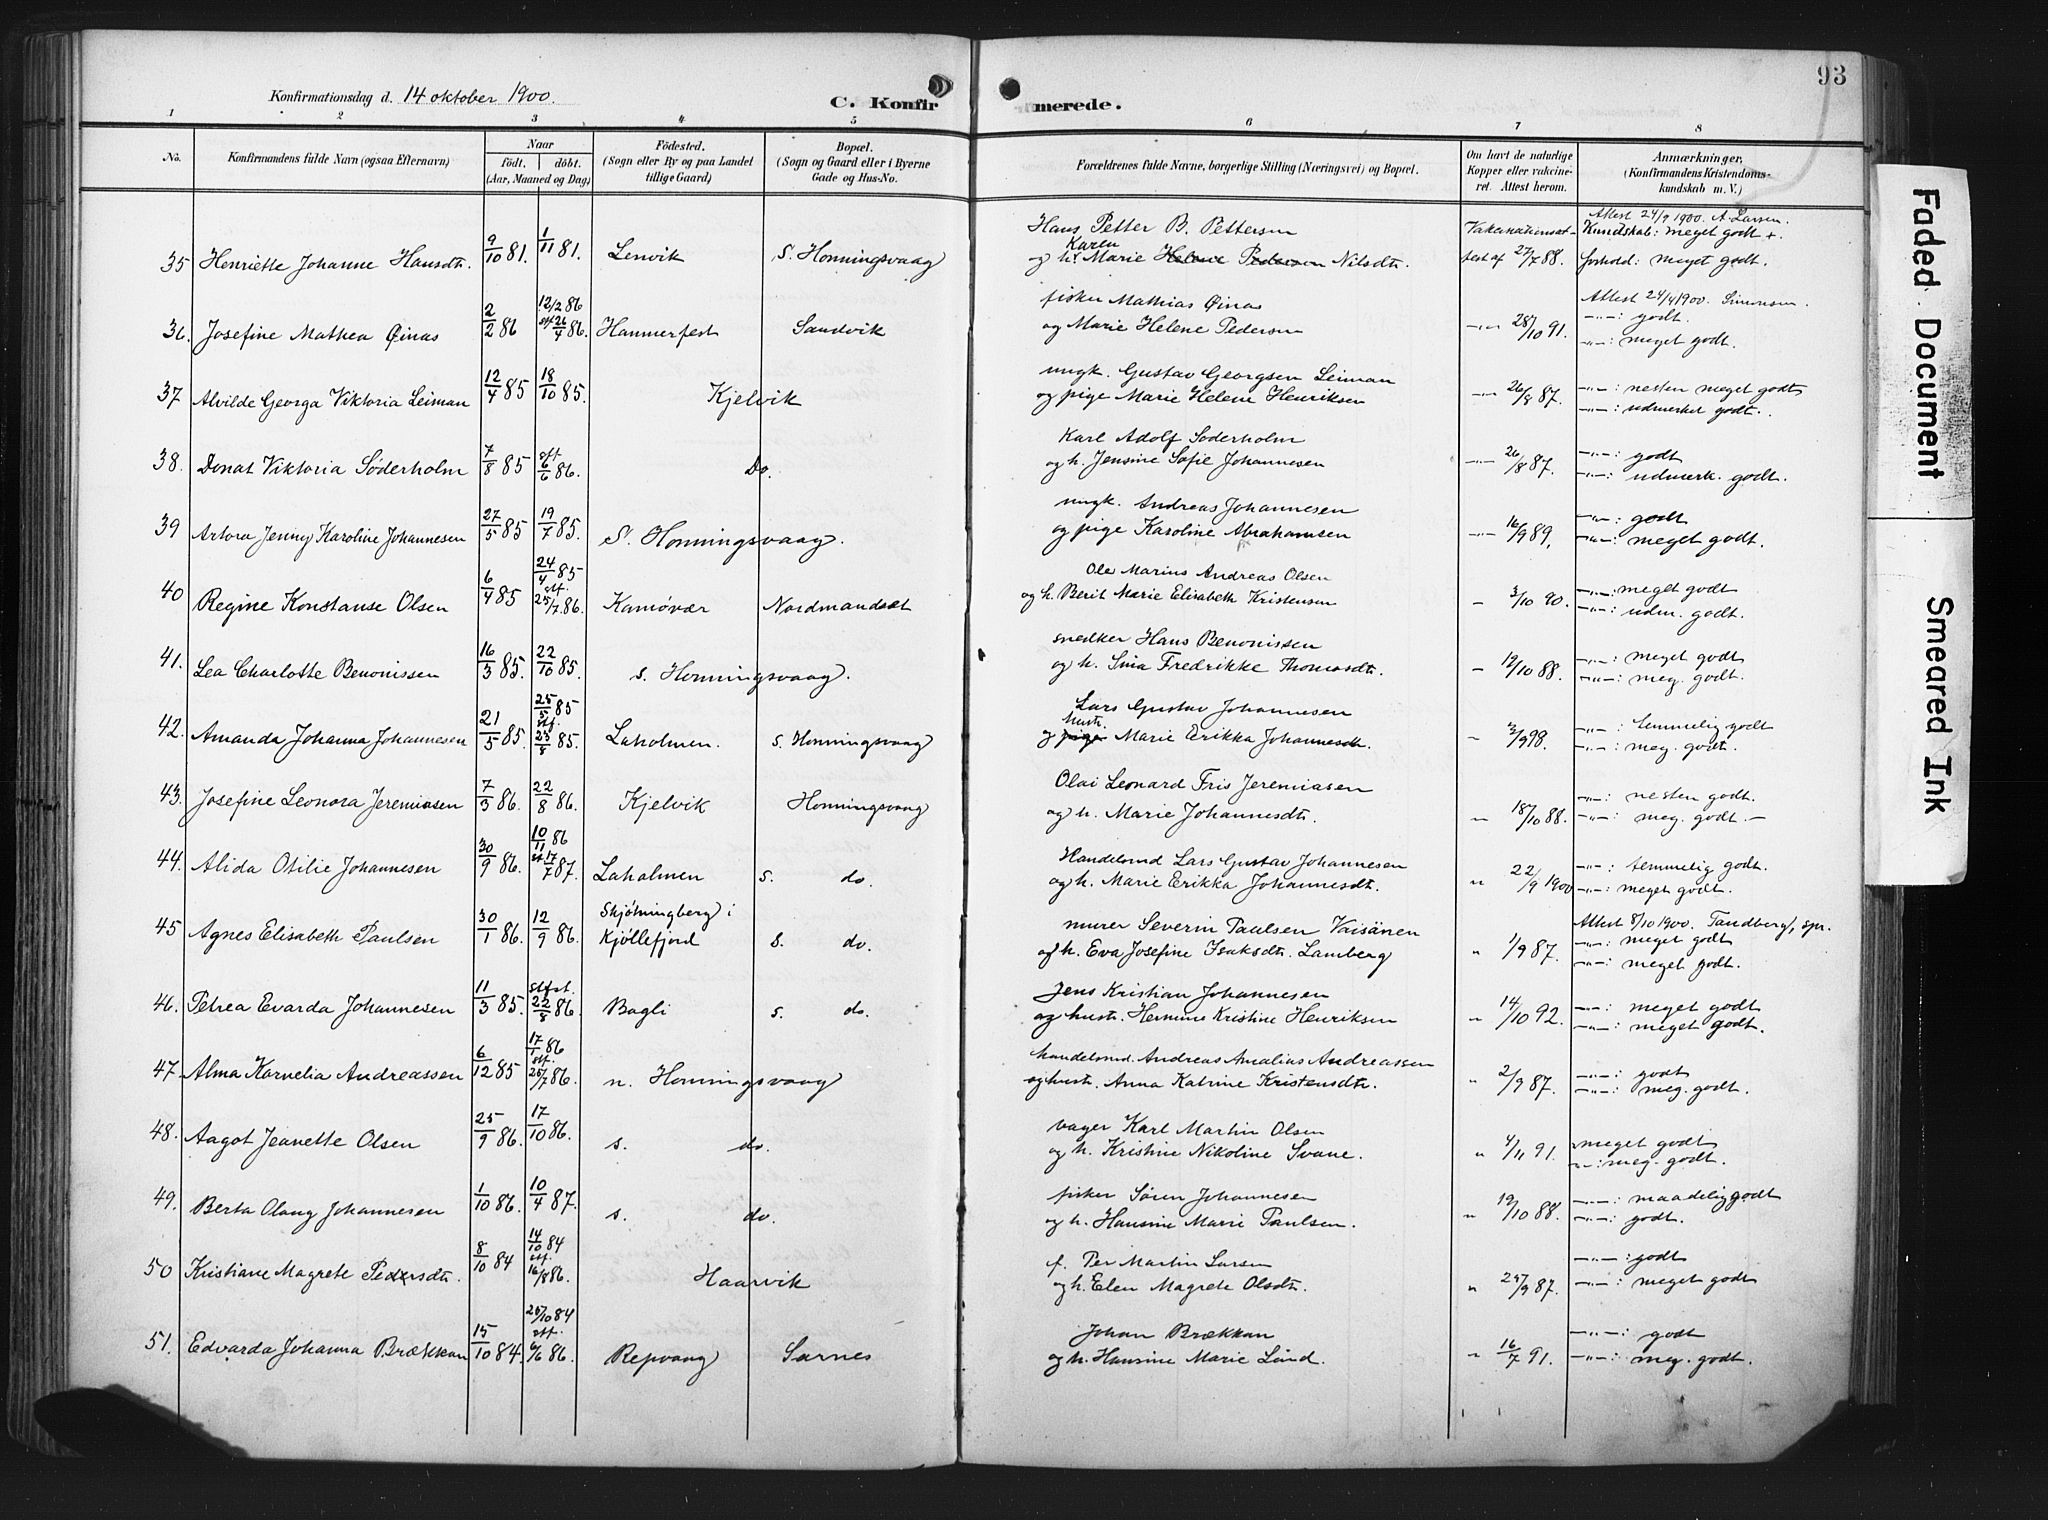 93
Konfirmationsdag d. 14 oktober 1900.
C. Konfirmerede.
1 2 3 4 5 6 7 8
No.
Konfirmandens fulde Navn (ogsaa Efternavn)
Naar
født. døbt.
(Aar, Maaned og Dag)
Fødested.
(Sogn eller By og paa Landet
tillige Gaard)
Bopæl.
(Sogn og Gaard eller i Byerne
Gade og Hus-No.
Forældrenes fulde Navne, borgerlige Stilling (Næringsvei) og Bopæl.
Om havt de naturlige
Kopper eller vakcine-
ret. Attest herom.
Anmærkninger,
(Konfirmandens Kristendoms-
kundskab m. V.)
Hans Petter B. Pettersen
Attest 24/9 1900. A. Larsen.
Kundskab: meget godt +.
35 Henriette Johanne Hansdtr. 9/10 81. 1/11 81. Lenvik S. Honningsvaag
Karen
og h. Marie Helene Pedersen Nilsdtr. test af 27/7 88. forhold: meget godt.
fisker Mathias Øinas Attest 24/4 1900. Simonsen.
36. Josefine Mathea Øinas 2/2 86 12/2 86 stf 26/4 86. Hammerfest Sandvik
—"—: godt.
og Marie Helene Pedersen —"— 28/10 91. —"—: meget godt.
ungk. Gustav Georgsen Leiman
37 Alvilde Georga Viktoria Leiman 12/4 85 18/10 85. Kjelvik
—"—: nesten meget godt
og pige Marie Helene Henriksen —"— 26/8 87. —"—: udmerket godt.
Karl Adolf Søderholm
38. Donat Viktoria Søderholm 7/8 85 stf 6/6 86. Do.
—"—: godt
og h. Jensine Sofie Johannesen —"— 26/8 87. —"—: udmerk. godt.
ungk. Andreas Johannesen
39 Artora Jenny Karoline Johannesen 27/5 85 19/7 85. S. Honningsvaag.
—"—: godt
og pige Karoline Abrahamsen —"— 16/9 89. —"—: meget godt.
Ole Marius Andreas Olsen
40 Regine Konstanse Olsen 6/4 85 24/4 85 stf. 25/7 86. Kamøvær Nordmandset
—"—: meget godt
og h. Berit Marie Elisabeth Kristensen — 3/10 90. —"—: udm. godt.
snedker Hans Benonissen
41. Lea Charlotte Benonissen 16/3 85. 22/10 85. s. Honningsvaag.
—"—: meget godt
og h. Sina Fredrikke Thomasdtr. — 19/10 88. —"—: meg. godt.
Lars Gustav Johannesen
42. Amanda Johanna Johannesen 21/5 85. 25/5 85 stf. 23/8 85. Laholmen. s. Honningsvaag
—"—: temmelig godt
hustr.
og pige Marie Erikka Johannesdtr. — 3/9 98. —"—: meg. godt.
Olai Leonard Fris Jeremiasen
43. Josefine Leonora Jeremiasen 7/3 86. 22/8 86. Kjelvik Honningsvaag
—"—: nesten godt.
og h. Marie Johannesdtr. " 18/10 88. —"—: meg. godt. —
Handelsmd Lars Gustav Johannesen
44. Alida Otilie Johannesen 30/9 86. 10/11 86 st 17/7 87. Laholmen s. do.
—"—: temmelig godt.
og h. Marie Erikka Johannesdtr. " 22/9 1900 —"—: meget godt.
murer Severin Paulsen Vaisänen Attest 8/10 1900. Tandberg, spr.
45 Agnes Elisabeth Paulsen 30/1 86. 12/9 86. Skjøtningberg i Kjøllefjord s. do.
—"—: meget godt
og h. Eva Josefine Isaksdtr. Lamberg " 1/9 87. —"—: meget godt.
Jens Kristian Johannesen
46. Petrea Evarda Johannesen 11/3 85. 22/8 86. Bagli s. do.
—"—: meget godt
og hustr. Hermine Kristine Henriksen " 14/10 92. —"—: meget godt.
handelsmd. Andreas Amalias Andreassen
47. Alma Kornelia Andreassen 6/12 85 17/1 86 stf. 25/7 86. n. Honningsvaag
—"—: godt
og hustr. Anna Katrine Kristensdtr. " 2/9 87. —"—: meg. godt.
vager Karl Martin Olsen
48. Aagot Jeanette Olsen 25/9 86. 17/10 86. s. do.
meget godt
og h. Kristine Nikoline Svane. " 4/11 91. —"—: meg. godt.
fisker Søren Johannesen
49. Berta Olaug Johannesen 1/10 86. 10/4 87. s. do.
—"—: maadelig godt
og h. Hansine Marie Paulsen. " 19/10 88. —"—: godt.
f. Per Martin Larsen
50 Kristiane Magrete Pedersdtr. 8/10 84 14/10 84 stf. 16/8 86. Haarvik
—"—: godt
og h. Elen Magrete Olsdtr. " 25/9 87. —"—: meget godt
Johan Brækkan
51. Edvarda Johanna Brækkan 15/10 84. 25/10 84 stf. 6/6 86. Repvaag Sarnes
—"—: godt
og h. Hansine Marie Lind. " 16/7 91. —"—: meg. godt.
Faded Document
Smeared Ink